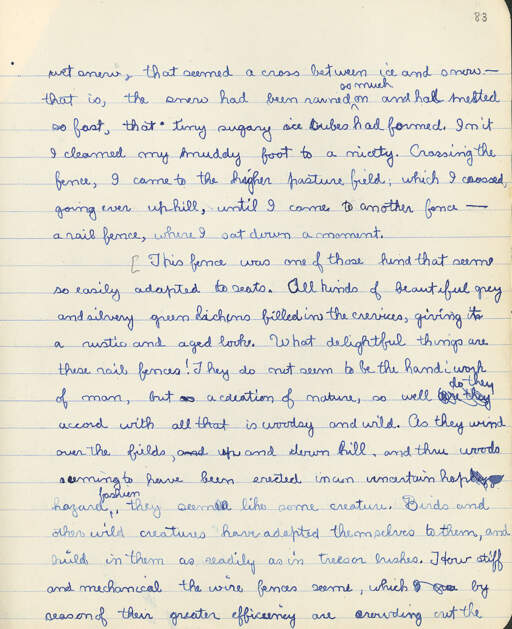 83
wet snow, that seemed a cross between ice and snow—
so much
that is, the snow had been rained on and had melted
so fast, that tiny sugary ice cubes had formed. In it
I cleaned my muddy foot to a nicety. Crossing the
fence, I came to the higher pasture field, which I crossed,
going ever uphill, until I came to another fence —
a rail fence, where I sat down a moment.
[ This fence was one of those kind that seem
so easily adapted to seats. All kinds of beautiful grey
and silvery green lichens filled in the crevices, giving it
a rustic and aged looke. What delightful things are
these rail fences! They do not seem to be the handiwork
do they
of man, but a creation of nature, so well are they
accord with all that is woodsy and wild. As they wind
over the fields, and up and down hill, and thru woods
seeming to have been erected in an uncertain hap
fashion
hazard, they seem like some creature. Birds and
other wild creatures have adapted themselves to them, and
build in them as readily as in trees or bushes. How stiff
and mechanical the wire fences seeme, which by
reason of their greater efficiency are crowding out the